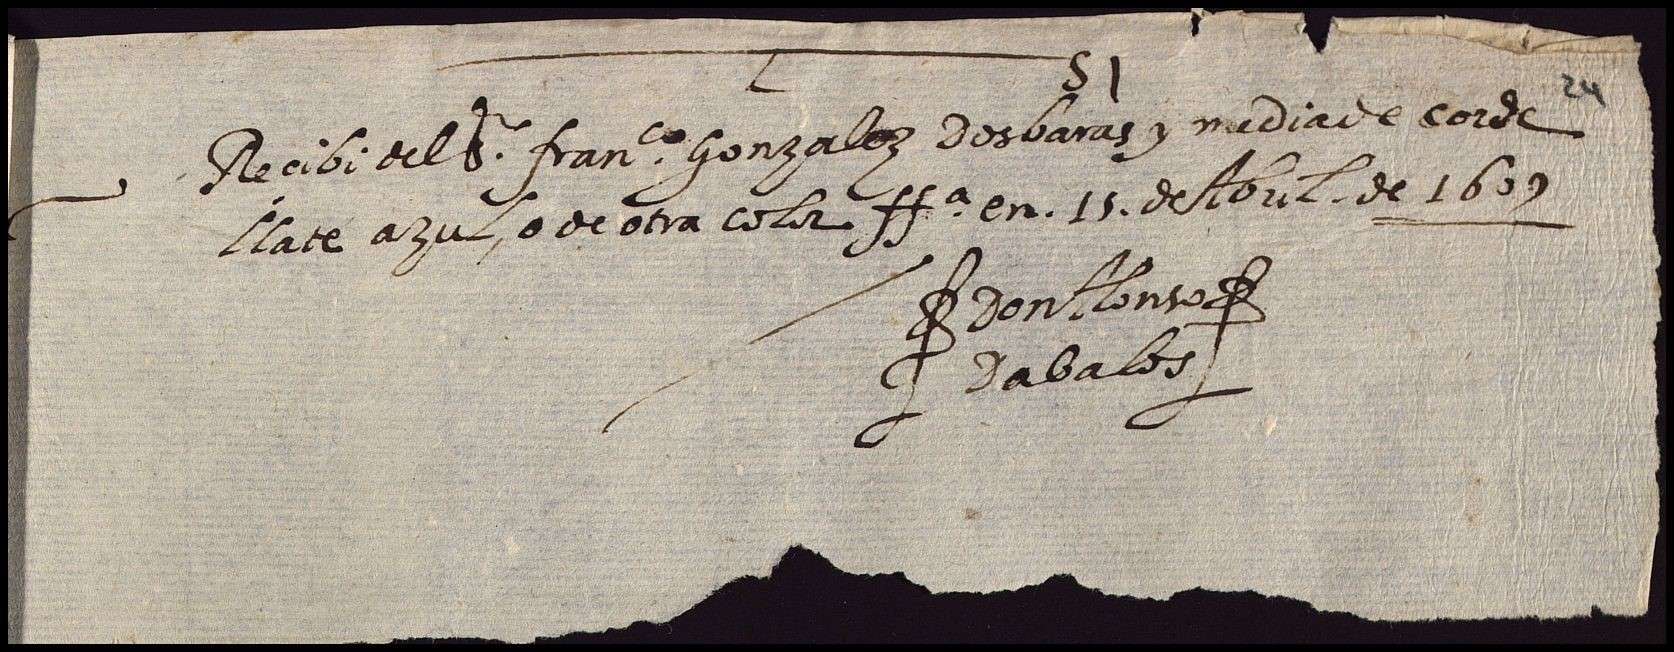 51
24
Recibi del Sr. franco. Gonzalez Dosbaras y media de corde
llate azul, o de otra color ffa. en. 15. de Abril. de 1609
Don Alonso
Dabalos